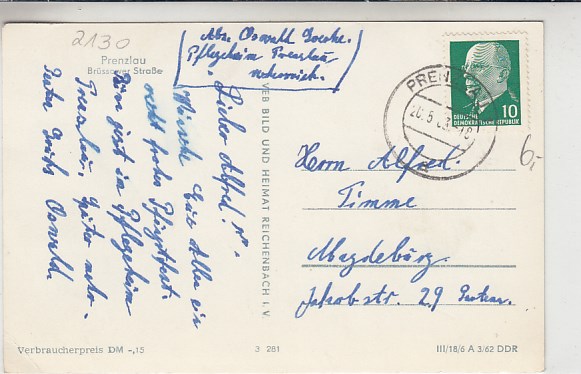 2130
Prenzlau
Brüssower Straße
Abs. Oswald
Pflegeheim Prenzlau
PRENZLAU
20.5.63
10
DEUTSCHE
DEMOKRATISCHE REPUBLIK
6,-
Lieber Alfred!
Wünsche Euch Allen ein
recht frohes Pfingstfest.
Bin jetzt im Pflegeheim
Prenzlau, später mehr.
Gruß Oswald.
VEB BILD UND HEIMAT REICHENBACH I. V.
Herrn Alfred
Timme
Magdeburg
Jakobstr. 29
Verbraucherpreis DM -,15
3 281
III/18/6 A 3/62 DDR